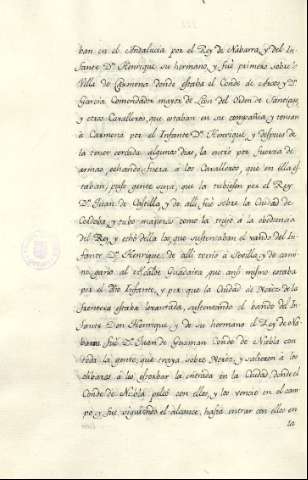 ban en el Andalucia por el Rey de Nabarra, y del In-
fante Dn. Henrique su hermano, y fué primero sobre la
Villa de Carmona donde estaba el Conde de Arcos, y Dn.
Garcia Comendador mayor de Leon del Orden de Santiago
y otros Cavalleros, que estaban en su compañia y tenian
a Carmona por el Infante Dn. Henrique, y despues de
la tener cercada algunos dias, la entró por fuerza de
armas echando fuera a los Cavalleros, que en ella es-
taban; puso gente suya, que la tubiesen por el Rey
Dn. Juan de Castilla y de alli fué sobre la Ciudad de
Cordoba, y tubo maneras como la trujo a la obediencia
del Rey, y echó della los que sustentaban el vando del In-
fante Dn. Henrique; de alli vinó a Sevilla, y de cami-
no ganó al Alcalá de Guadaira, que ansi mismo estaba
por el dho Infante, y por que la Ciudad de Xerez de la
frontera estaba levantada, sustentando el bando del In-
fante Don Henrique y de su hermano el Rey de Na-
barra fué Dn. Juan de Guzman Conde de Niebla con
toda la gente, que traya sobre Xerez, y salieron a los
olibares a les estorbar la entrada en la Ciudad, donde el
Conde de Niebla peleó con ellos, y los venció en el cam-
po, y fué siguiendo el alcance, hasta entrar con ellos en
la